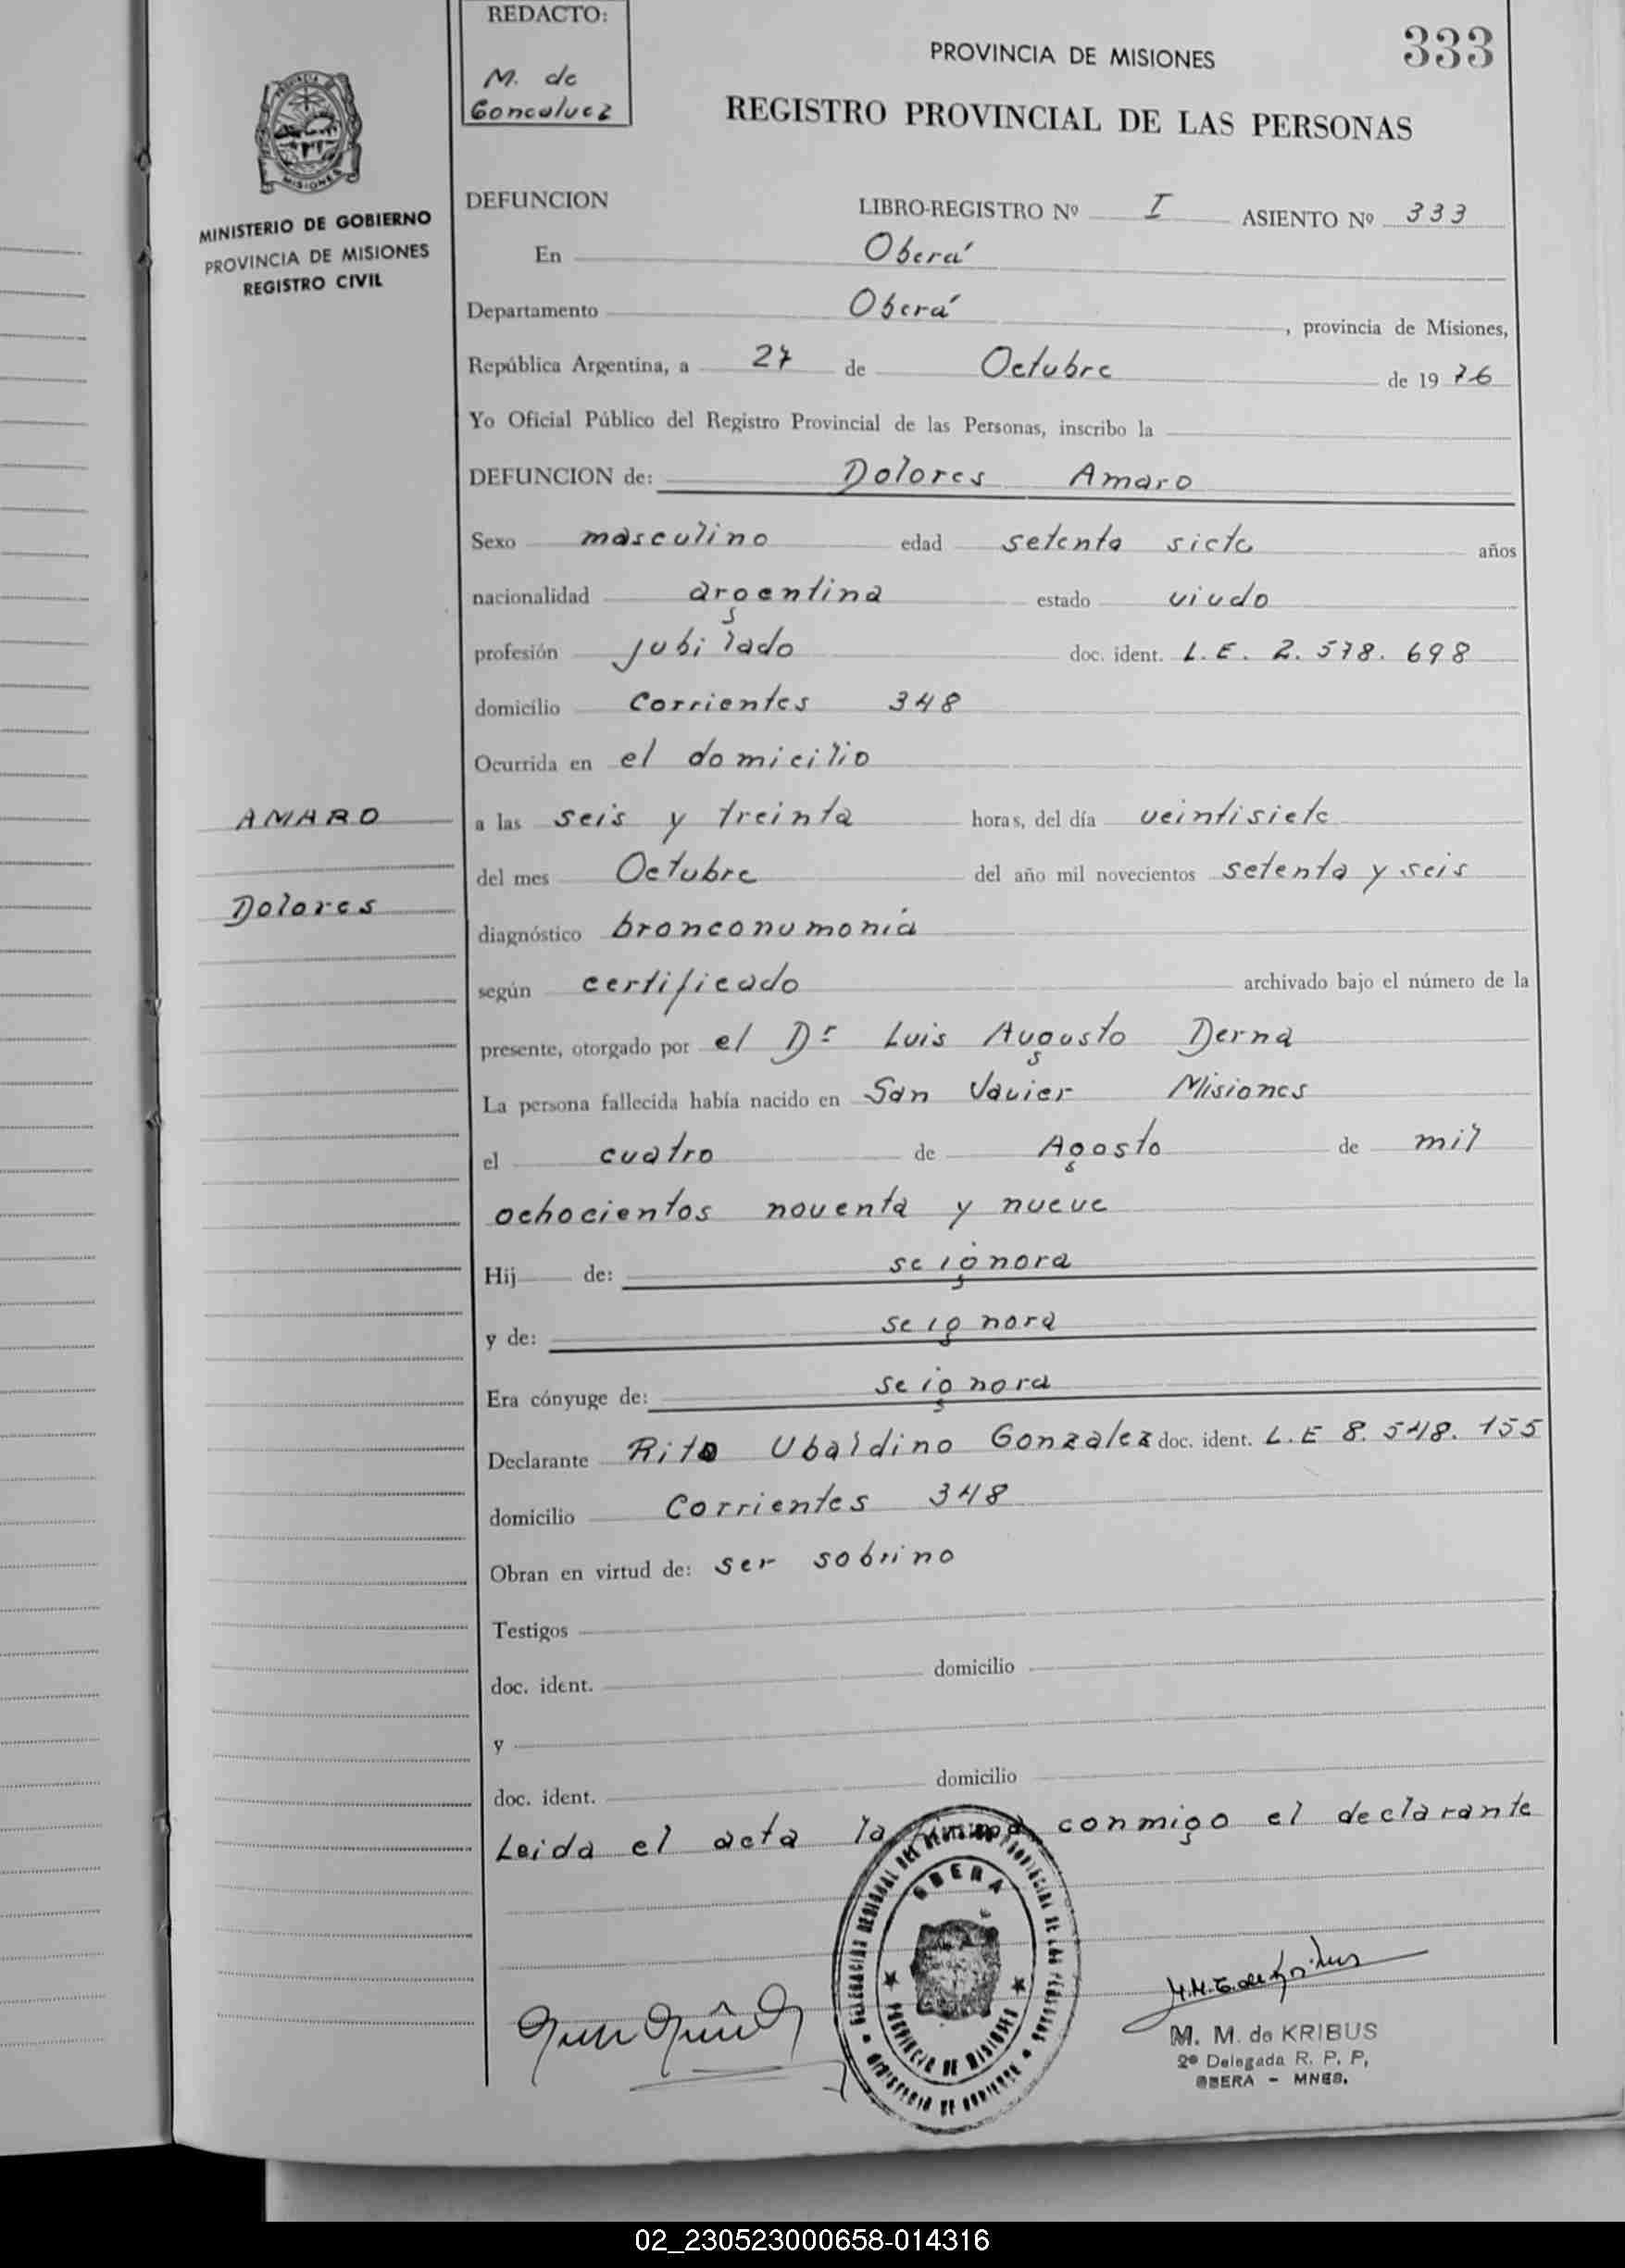 REDACTO:
M. de
Goncalvez
PROVINCIA DE MISIONES
333
REGISTRO PROVINCIAL DE LAS PERSONAS
MISIONES
MINISTERIO DE GOBIERNO
PROVINCIA DE MISIONES
REGISTRO CIVIL
DEFUNCION LIBRO-REGISTRO Nº I ASIENTO Nº 333
En Oberá
Departamento Oberá, provincia de Misiones,
República Argentina, a 27 de Octubre de 1976
Yo Oficial Público del Registro Provincial de las Personas, inscribo la
DEFUNCION de: Dolores Amaro
Sexo masculino edad setenta siete años
nacionalidad argentina estado viudo
profesión jubilado doc. ident. L.E. 2.578.698
domicilio Corrientes 348
Ocurrida en el domicilio
AMARO
a las seis y treinta horas, del día veintisiete
del mes Octubre del año mil novecientos setenta y seis
Dolores
diagnóstico bronconumonía
según certificado archivado bajo el número de la
presente, otorgado por el Dr Luis Augusto Derna
La persona fallecida había nacido en San Javier Misiones
el cuatro de Agosto de mil
ochocientos noventa y nueve
Hij de: se ignora
y de: se ignora
Era cónyuge de: se ignora
Declarante Rito Ubaldino Gonzalez doc. ident. L.E 8.548.155
domicilio Corrientes 348
Obran en virtud de: ser sobrino
Testigos
doc. ident. domicilio
y
doc. ident. domicilio
Leida el acta la firma conmigo el declarante
OBERA
PROVINCIA DE MISIONES
M. M. de KRIBUS
2º Delegada R. P. P,
OBERA - MNES.
02_230523000658-014316